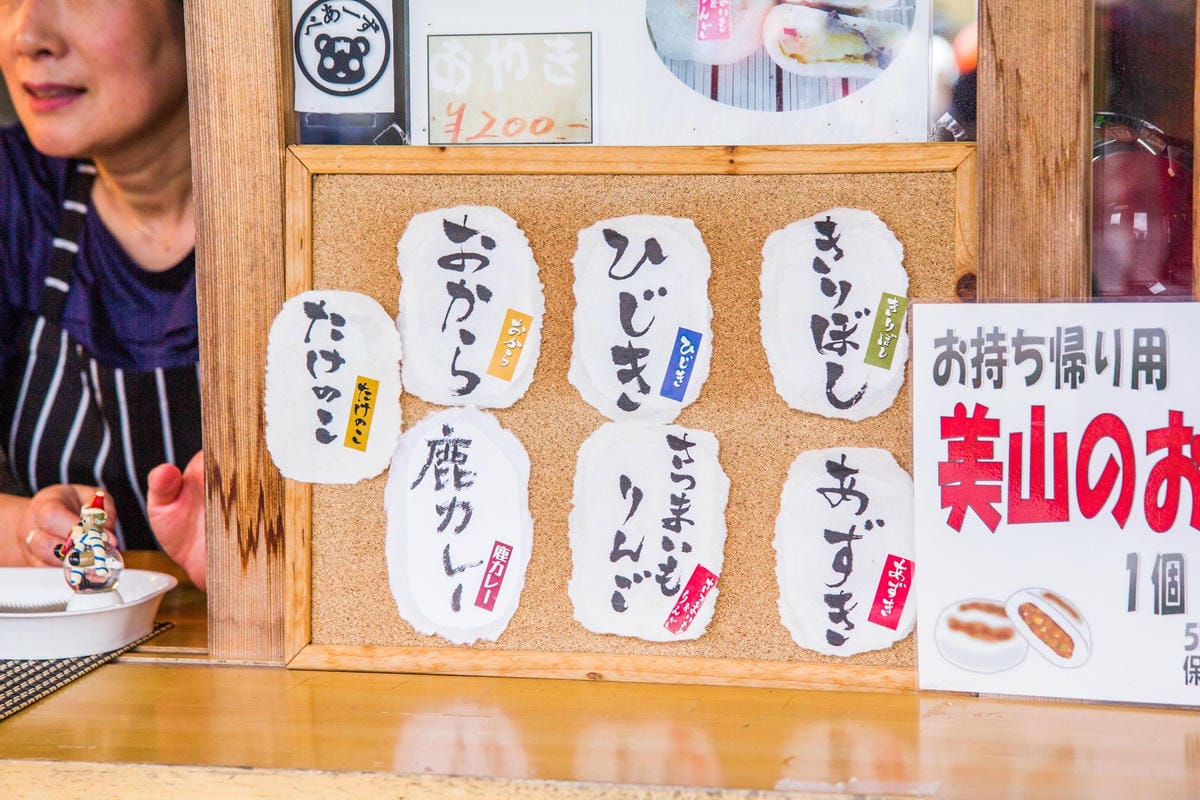 べあーず
おやき
¥200-
おから
おから
ひじき
ひじき
きりぼし
きりぼし
たけのこ
たけのこ
鹿カレー
鹿カレー
さつまいも
りんご
さつまいも
りんご
あずき
あずき
お持ち帰り用
美山のお
1個
5
保